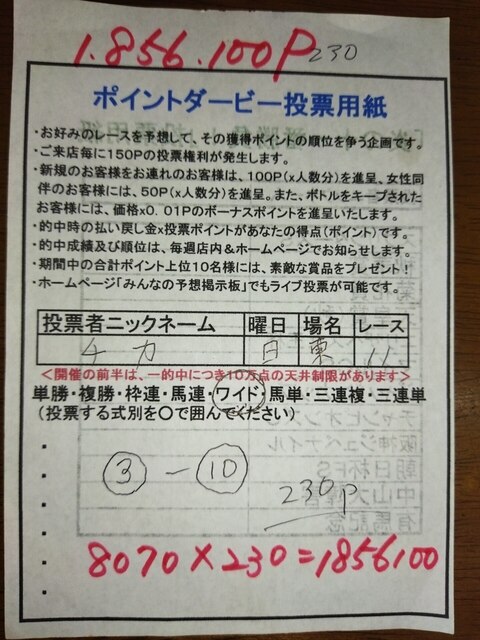 1.856.100P 230
ポイントダービー投票用紙
・お好みのレースを予想して、その獲得ポイントの順位を争う企画です。
・ご来店毎に150Pの投票権利が発生します。
・新規のお客様をお連れのお客様は、100P(x人数分)を進呈、女性同
伴のお客様には、50P(x人数分)を進呈。また、ボトルをキープされた
お客様には、価格x0．01Pのボーナスポイントを進呈いたします。
・的中時の払い戻し金x投票ポイントがあなたの得点(ポイント)です。
・的中成績及び順位は、毎週店内&ホームページでお知らせします。
・期間中の合計ポイント上位10名様には、素敵な賞品をプレゼント！
・ホームページ「みんなの予想掲示板」でもライブ投票が可能です。
投票者ニックネーム 曜日 場名 レース
チカ 日 東 11
<開催の前半は、一的中につき10万点の天井制限があります>
単勝・複勝・枠連・馬連・ワイド・馬単・三連複・三連単
(投票する式別を〇で囲んでください)
③－⑩
230p
8070×230=1856100